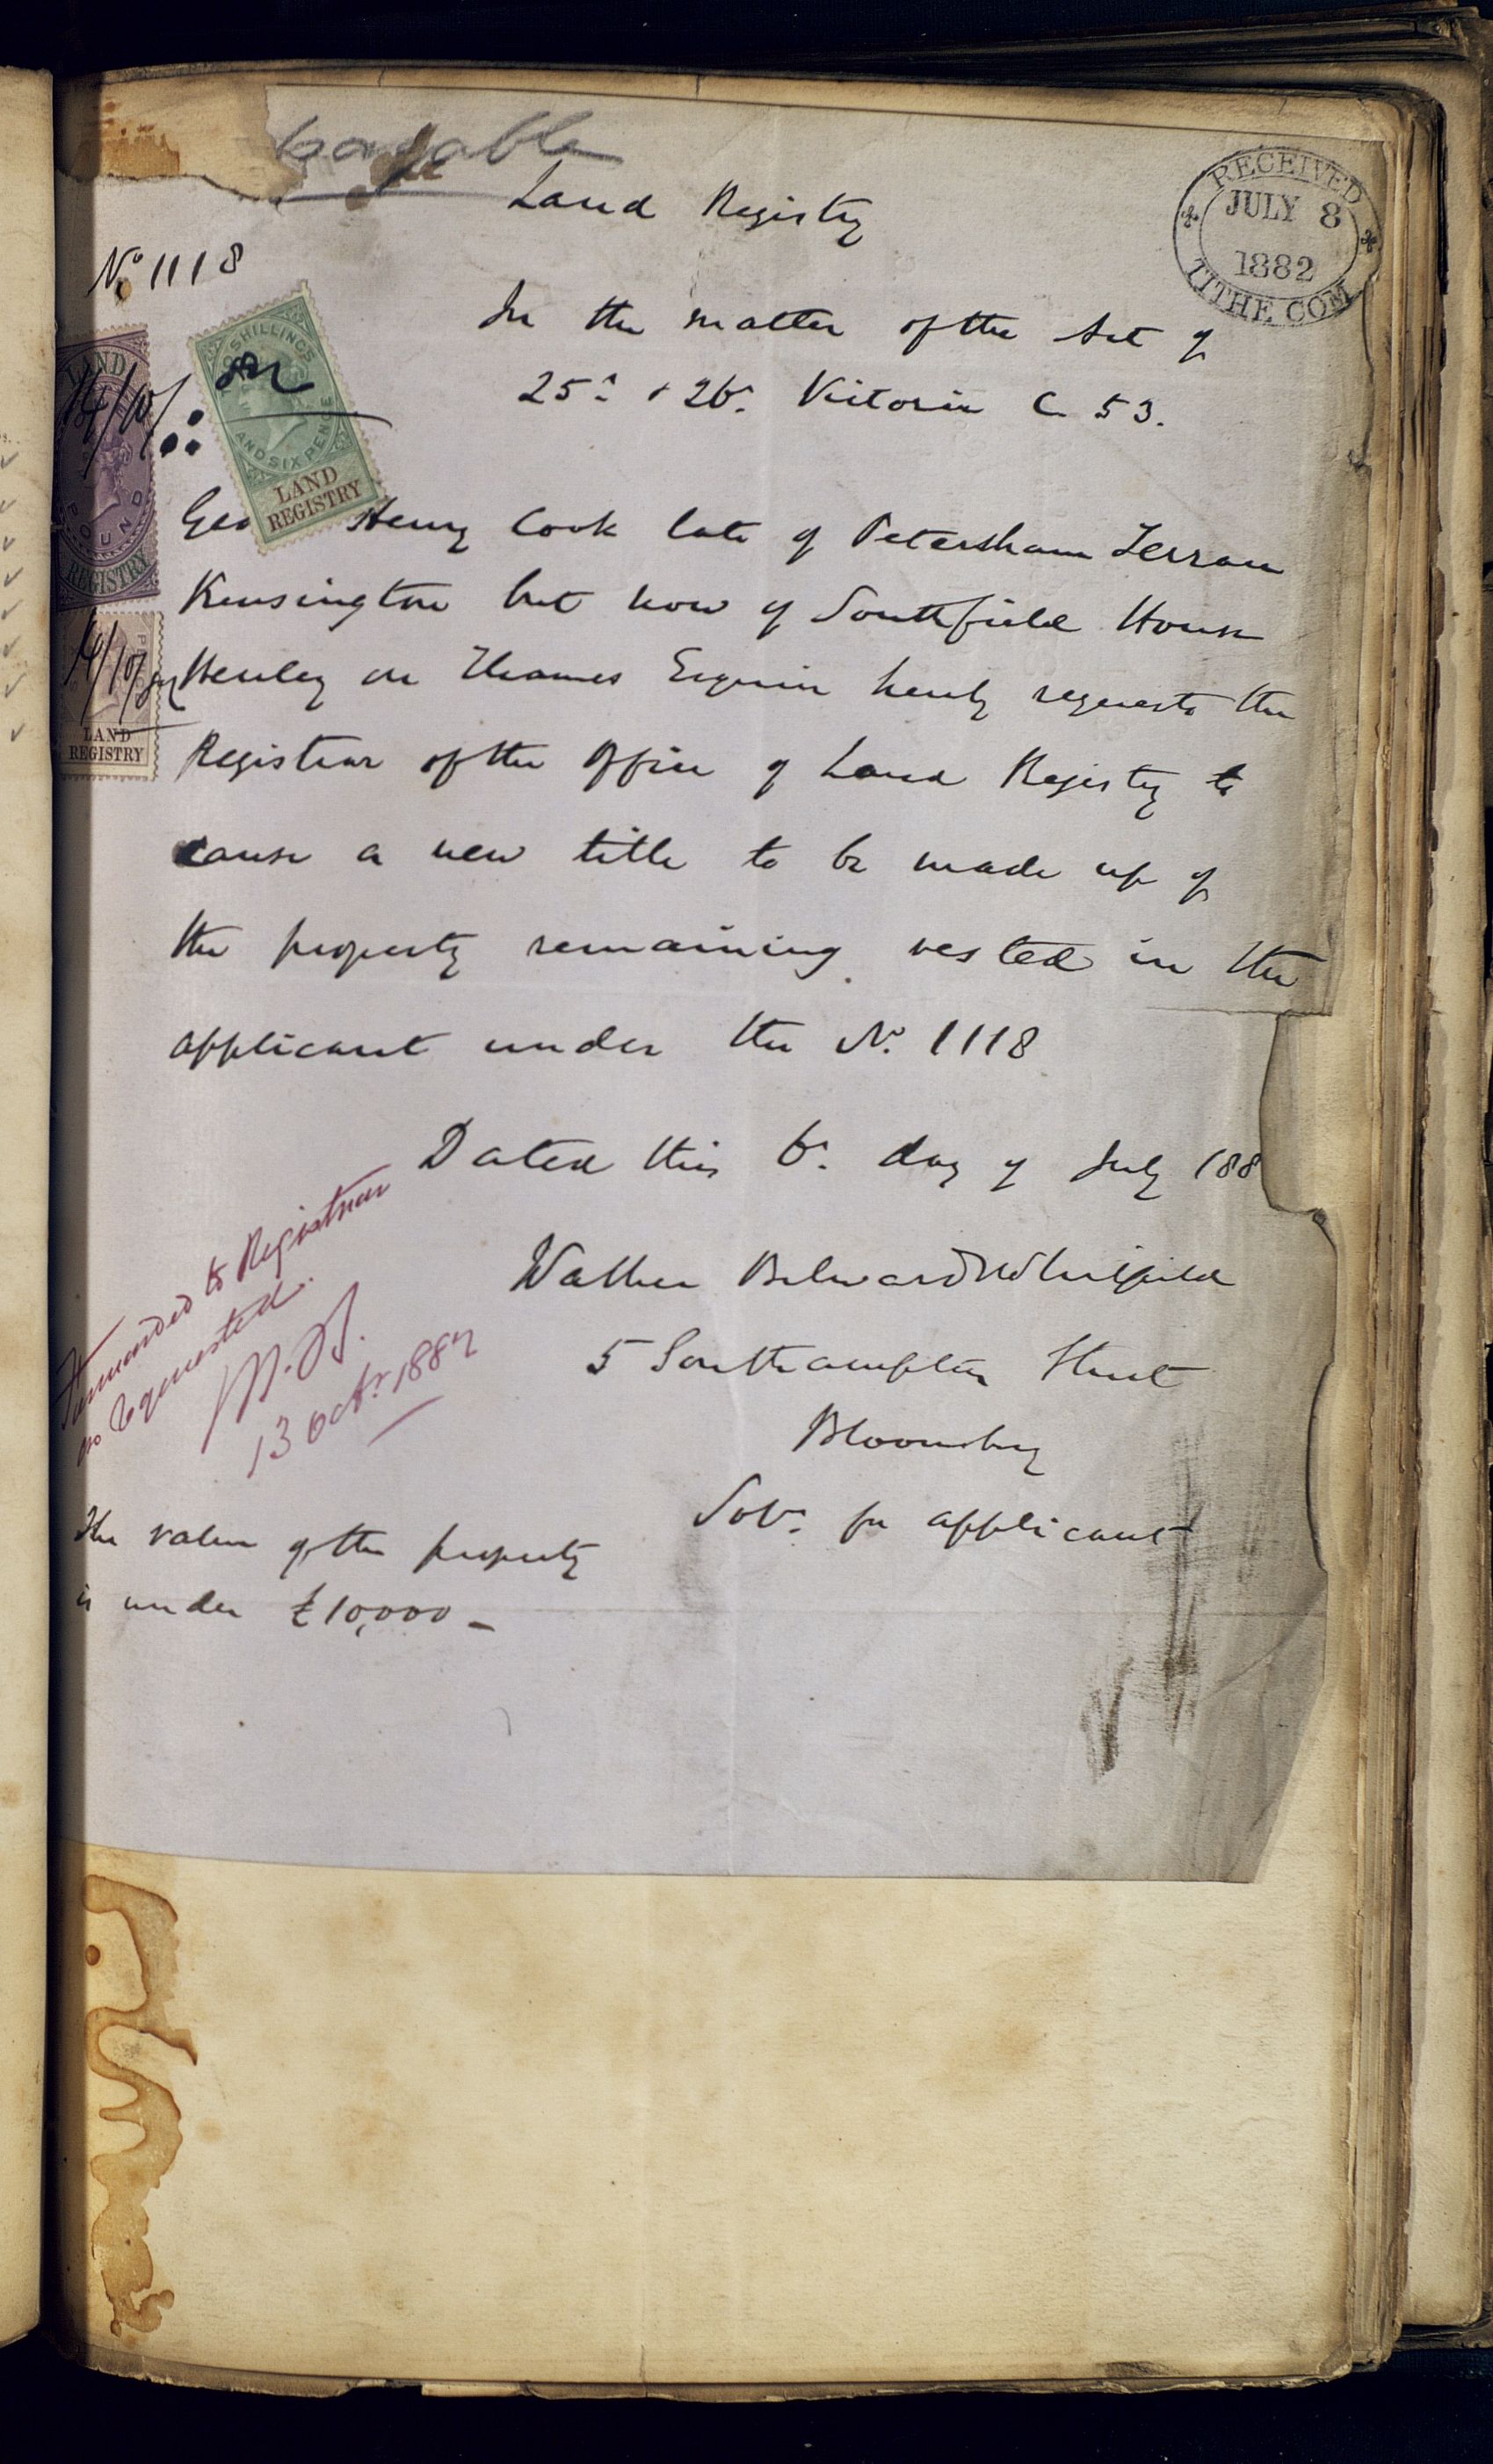 Land Registry
RECEIVED
JULY 8
1882
TITHE COM
No 1118
In the matter of the Act of
25th & 26th Victoria C. 53.
LAND
POUND
REGISTRY
SHILLINGS
AND SIX PENCE
LAND
REGISTRY
Geo Henry Cook late of Petersham Terrace
Kensington but now of Southfield House
Henley on Thames Esquire hereby requests the
Registrar of the Office of Land Registry to
LAND
REGISTRY
cause a new title to be made up of
the property remaining vested in the
applicant under the No. 1118
Dated this 6th day of July 188
5 Southampton Street
Bloomsbury
Solr. for applicant
Forwarded to Registrar
as requested.
13 Octr 1882
The value of the property
is under £10,000 –